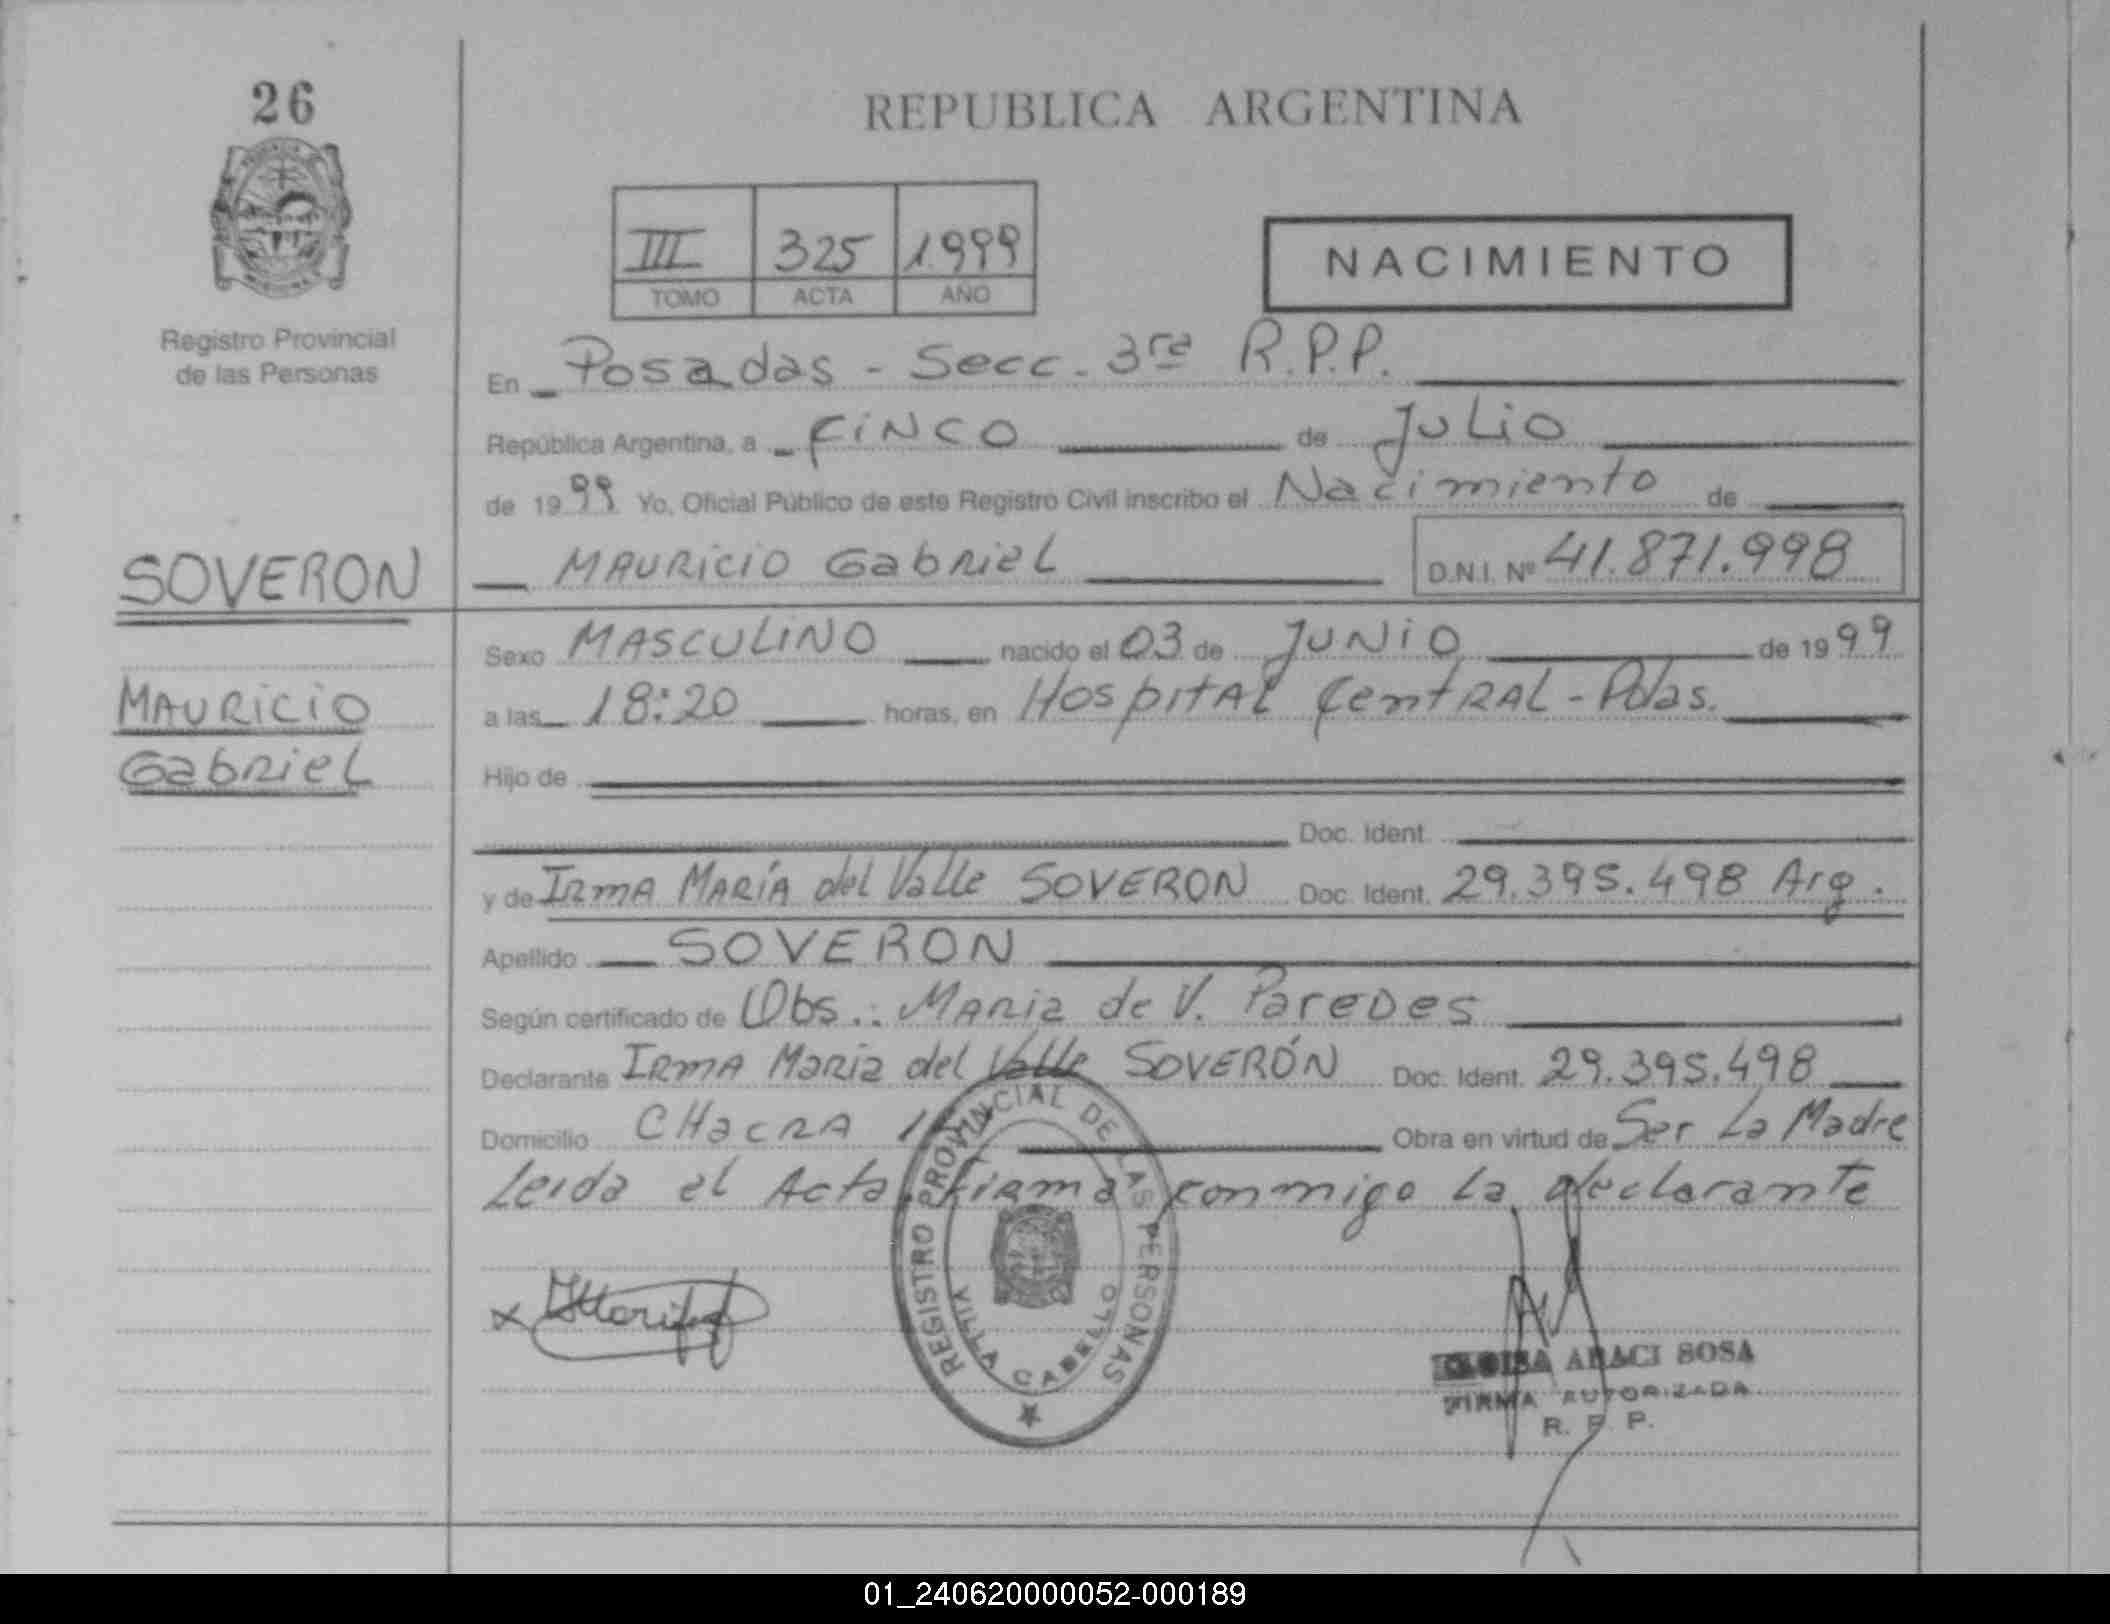 26
REPUBLICA ARGENTINA
III 325 1.999
TOMO ACTA AÑO
NACIMIENTO
Registro Provincial
de las Personas
En Posadas - Secc. 3ra R.P.P.
República Argentina, a CINCO de JULIO
de 1999 Yo, Oficial Público de este Registro Civil inscribo el Nacimiento de
MAURICIO GabRieL D.N.I. Nº 41.871.998
SOVERON
MAURICIO
GabRieL
Sexo MASCULINO nacido el 03 de JUNIO de 1999
a las 18:20 horas, en HospitAL CentRAL - Pdas.
Hijo de
Doc. Ident.
y de IRMA MARÍA del Valle SOVERON Doc. Ident. 29.395.498 Arg.
Apellido SOVERON
Según certificado de Obs.: MARia de V. Paredes
Declarante IRMA Maria del Valle SOVERÓN Doc. Ident. 29.395.498
Domicilio CHacRA Obra en virtud de Ser La Madre
Leida el Acta, firma conmigo la declarante
REGISTRO PROVINCIAL DE LAS PERSONAS
VILLA CABELLO
ARACI SOSA
FIRMA AUTORIZADA
R. P. P.
01_240620000052-000189